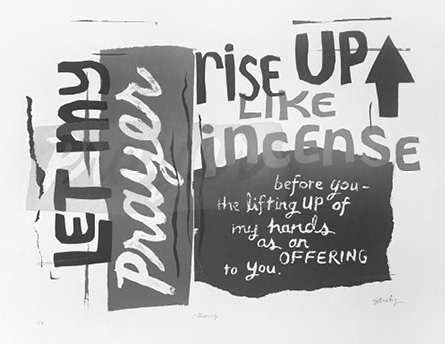 LET my
Prayer
rise UP
LIKE
incense
before you-
the lifting UP of
my hands
as an
OFFERING
to you.